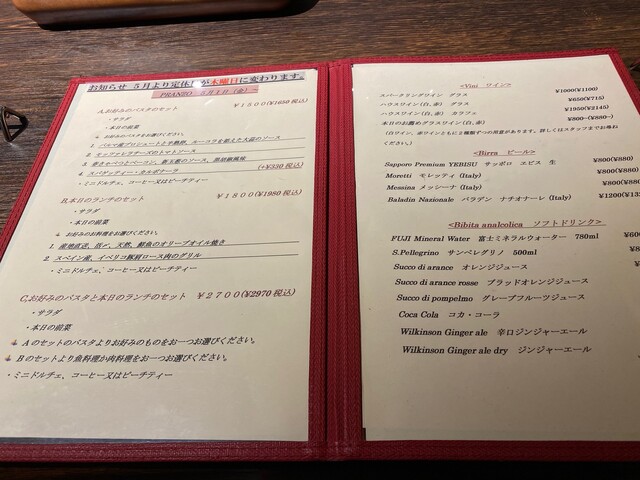 お知らせ 5月より定休日が木曜日に変わります。
PRANZO 5月1日（金）～
A.お好みのパスタのセット ￥1500(¥1650 税込)
・サラダ
・本日の前菜
お好みのパスタをお選びください。
1. パルマ産プロシュートと半熟卵、ルーコラを添えた大葉のソース
2. モッツァレラチーズのトマトソース
3. 春キャベツとベーコン、新玉葱のソース、黒胡椒風味
4. スパゲッティー・カルボナーラ (+¥330 税込)
・ミニドルチェ、コーヒー又はピーチティー
B.本日のランチのセット ￥1800(¥1980 税込)
・サラダ
・本日の前菜
お好みのお料理をお選びください。
1. 産地直送、旬の、天然、鮮魚のオリーブオイル焼き
2. スペイン産、イベリコ豚肩ロース肉のグリル
・ミニドルチェ、コーヒー又はピーチティー
C.お好みのパスタと本日のランチのセット ￥2700(¥2970 税込)
・サラダ
・本日の前菜
Aのセットのパスタよりお好みのものを一つお選びください。
Bのセットより魚料理か肉料理をお一つお選びください。
・ミニドルチェ、コーヒー又はピーチティー
<Vini ワイン>
スパークリングワイン グラス ¥1000(¥1100)
ハウスワイン(白、赤) グラス ¥650(¥715)
ハウスワイン(白、赤) カラフェ ¥1950(¥2145)
本日のお薦めグラスワイン(白、赤) ¥800~(¥880~)
(白ワイン、赤ワインともに2種類ずつの用意があります。詳しくはスタッフまでお尋ね
ください。)
<Birra ビール>
Sapporo Premium YEBISU サッポロ ヱビス 生 ¥800(¥880)
Moretti モレッティ (Italy) ¥800(¥880)
Messina メッシーナ (Italy) ¥800(¥880
Baladin Nazionale バラデン ナチオナーレ (Italy) ¥1200(¥132
<Bibita analcolica ソフトドリンク>
FUJI Mineral Water 富士ミネラルウォーター 780ml ¥600
S.Pellegrino サンペレグリノ 500ml
Succo di arance オレンジジュース
Succo di arance rosse ブラッドオレンジジュース
Succo di pompelmo グレープフルーツジュース
Coca Cola コカ・コーラ
Wilkinson Ginger ale 辛口ジンジャーエール
Wilkinson Ginger ale dry ジンジャーエール